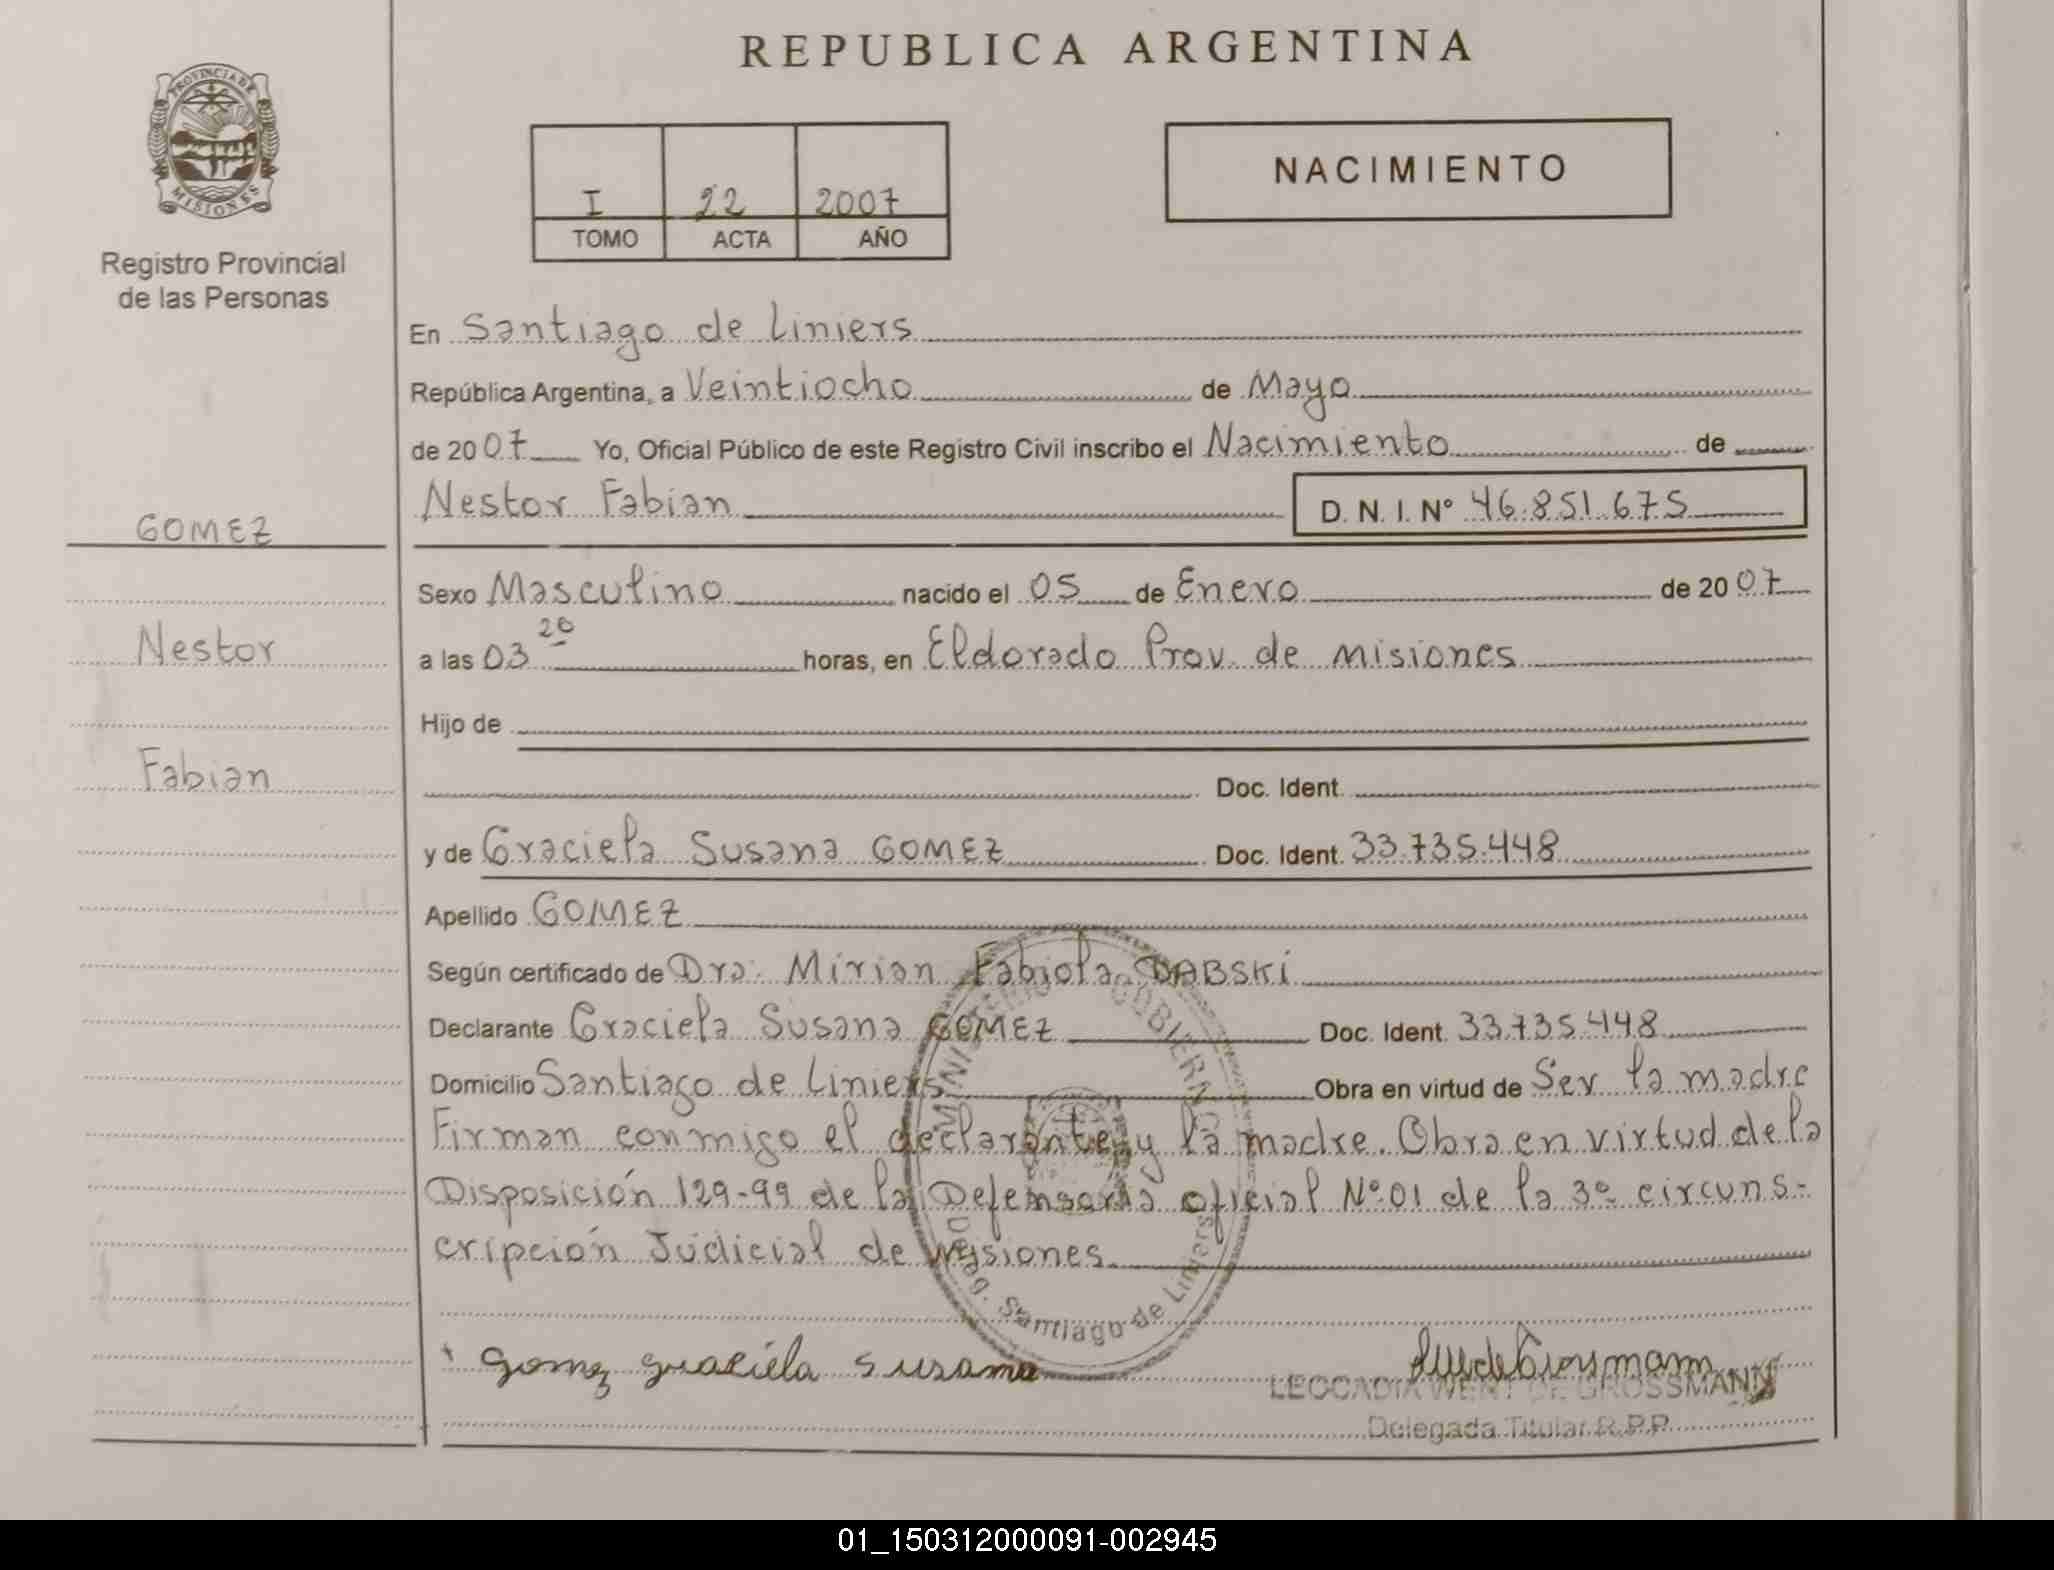 REPUBLICA ARGENTINA
PROVINCIA DE
MISIONES
Registro Provincial
de las Personas
I 22 2007
TOMO ACTA AÑO
NACIMIENTO
En Santiago de Liniers
República Argentina, a Veintiocho de Mayo
de 2007 Yo, Oficial Público de este Registro Civil inscribo el Nacimiento de
Nestor Fabian D. N. I. Nº 46.851.675
GOMEZ
Nestor
Fabian
Sexo Masculino nacido el 05 de Enero de 2007
a las 03 20 horas, en Eldorado Prov. de Misiones
Hijo de
Doc. Ident.
y de Graciela Susana GOMEZ Doc. Ident. 33.735.448
Apellido GOMEZ
Según certificado de Dra: Mirian Fabiola DABSKI
Declarante Graciela Susana GOMEZ Doc. Ident. 33.735.448
Domicilio Santiago de Liniers Obra en virtud de Ser la madre
Firman conmigo el declarante y la madre. Obra en virtud de la
Disposición 129-99 de la Defensoria oficial Nº 01 de la 3º circuns-
cripción Judicial de Misiones.
MINISTERIO GOBIERNO
Deleg. Santiago de Liniers
Gomez Graciela Susana
LEOCADIA WENT DE GROSSMANN
Delegada Titular R.P.P.
01_150312000091-002945